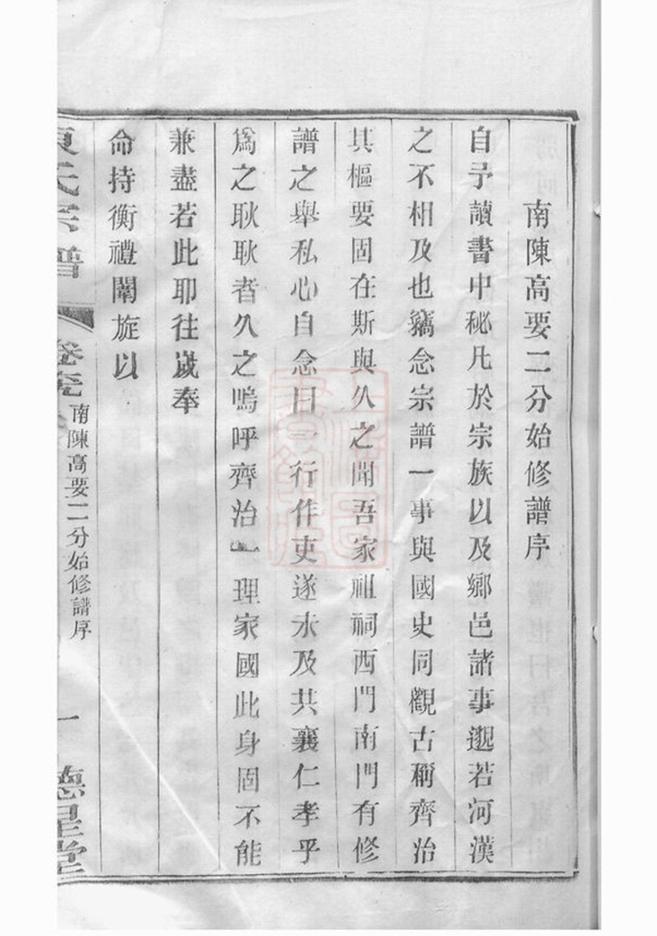 南陳高要二分始修譜序
自予讀書中秘凡於宗族以及鄉邑諸事邈若河漢
之不相及也竊念宗譜一事與國史同觀古稱齊治
其樞要固在斯與久之聞吾家祖祠西門南門有修
譜之舉私心自念曰一行作吏遂未及共襄仁孝乎
爲之耿耿者久之嗚呼齊治一理家國此身固不能
兼盡若此耶往嵗奉
命持衡禮闈旋以
陳氏宗譜
卷
南陳高要二分始修譜序
一
德星堂